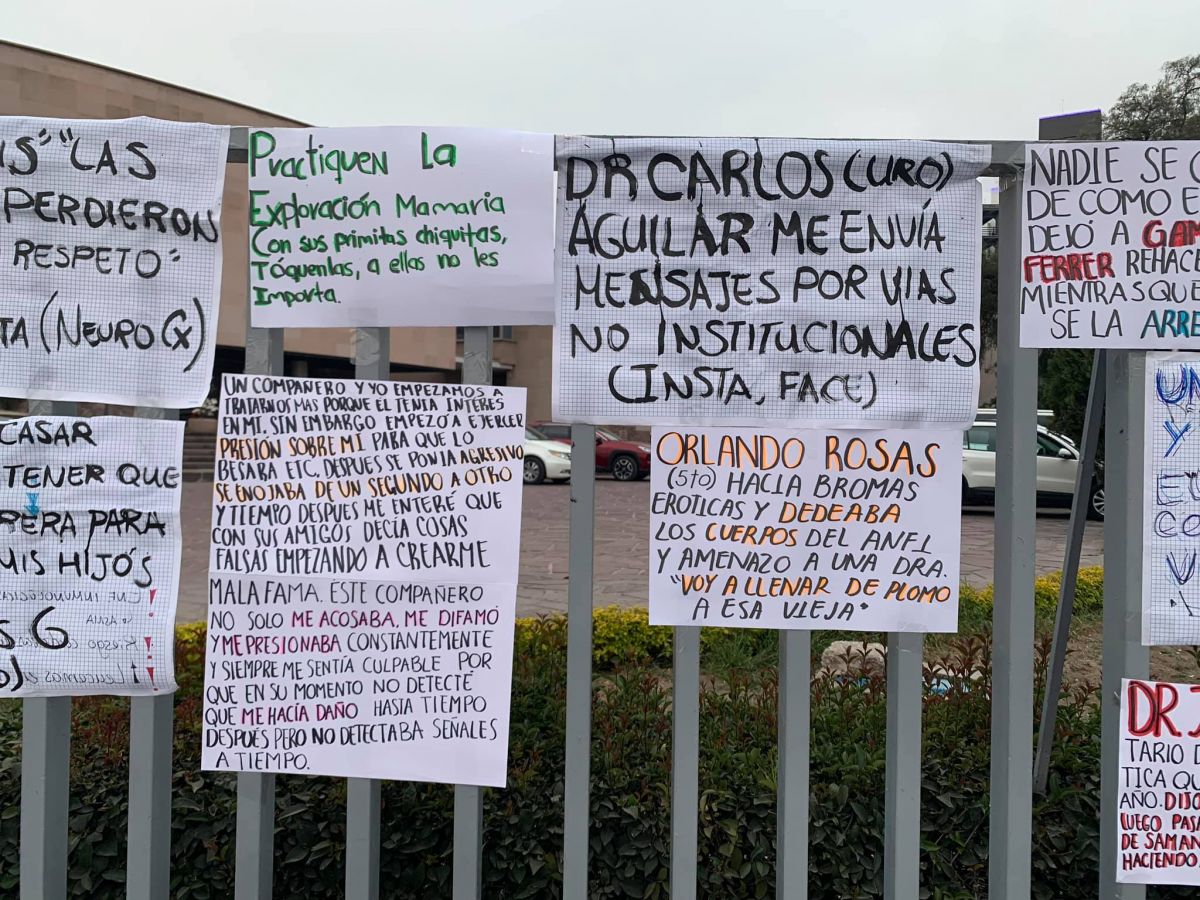 "LAS
PERDIERON
RESPETO"
(NEURO CX)
Practiquen La
Exploración Mamaria
Con sus primitas chiquitas,
Tóquenlas, a ellas no les
Importa.
DR. CARLOS (URO)
AGUILAR ME ENVÍA
MENSAJES POR VIAS
NO INSTITUCIONALES
(INSTA, FACE)
NADIE SE
DE COMO
DEJÓ A
FERRER
MIENTRAS QUE
SE LA
CASAR
TENER QUE
PARA
MIS HIJÓS
6
UN COMPAÑERO Y YO EMPEZAMOS A
TRATARNOS MAS PORQUE EL TENIA INTERES
EN MI. SIN EMBARGO EMPEZÓ A EJERCER
PRESIÓN SOBRE MI PARA QUE LO
BESARA ETC. DESPUES SE PONIA AGRESIVO
SE ENOJABA DE UN SEGUNDO A OTRO
Y TIEMPO DESPUES ME ENTERÉ QUE
CON SUS AMIGOS DECÍA COSAS
FALSAS EMPEZANDO A CREARME
MALA FAMA. ESTE COMPAÑERO
NO SOLO ME ACOSABA, ME DIFAMÓ
Y ME PRESIONABA CONSTANTEMENTE
Y SIEMPRE ME SENTÍA CULPABLE POR
QUE EN SU MOMENTO NO DETECTÉ
QUE ME HACÍA DAÑO HASTA TIEMPO
DESPUÉS PERO NO DETECTABA SEÑALES
A TIEMPO.
ORLANDO ROSAS
(5to) HACIA BROMAS
EROTICAS Y DEDEABA
LOS CUERPOS DEL ANFI
Y AMENAZO A UNA DRA.
"VOY A LLENAR DE PLOMO
A ESA VIEJA"
Y
DR.
TICA QUE
AÑO. DIJO
LUEGO
DE
HACIENDO